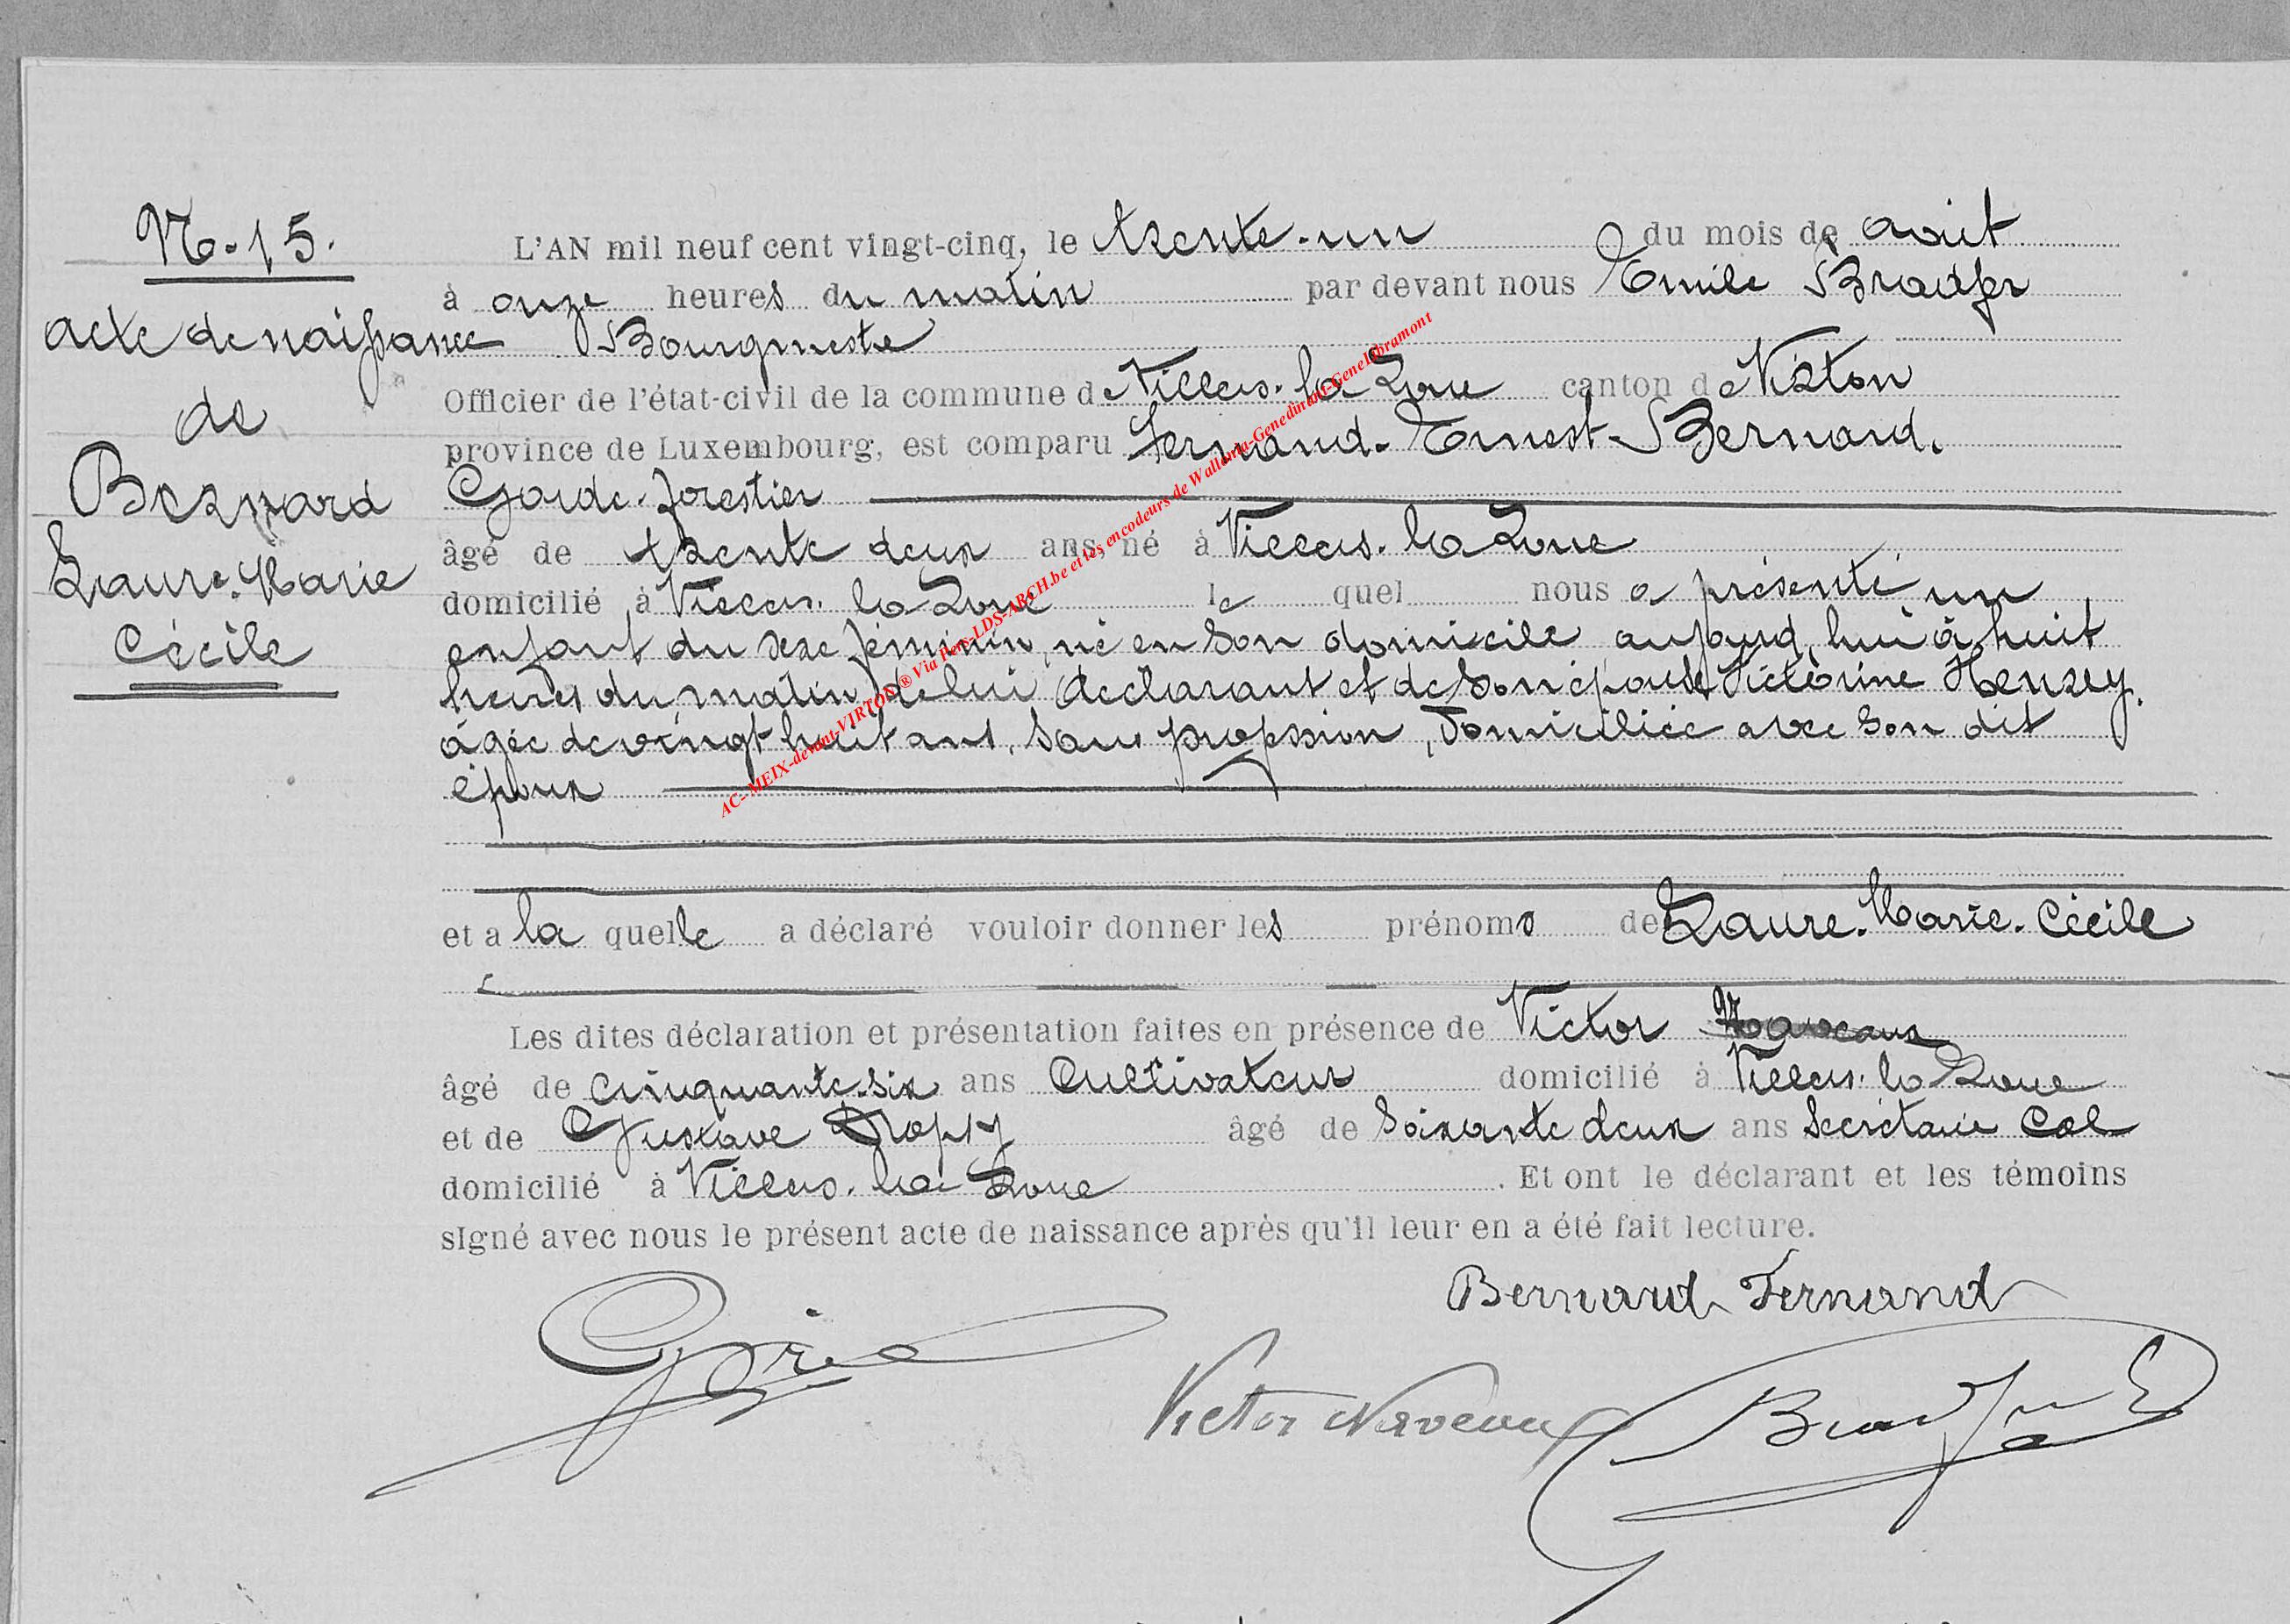 N°-15.
acte de naissance
de
Bernard
Laure-Marie
Cécile
L'AN mil neuf cent vingt-cinq, le trente-un du mois de août
à onze heures du matin par devant nous Emile Bradfer
Bourgmestre
Officier de l'état-civil de la commune de Villers-la-Loue canton de Virton
province de Luxembourg, est comparu Fernand-Ernest-Bernard.
Garde-forestier
âgé de trente deux ans, né à Villers-la Loue
domicilié à Villers-la-Loue le quel nous a présenté un
enfant du sexe féminin, né en son domicile aujourd'hui à huit
heures du matin, de lui déclarant et de son épouse Victorine
âgée de vingt huit ans, sans profession, domiciliée avec son dit
époux
et a la quelle a déclaré vouloir donner les prénoms de Laure-Marie-Cécile
Les dites déclaration et présentation faites en présence de Victor Naveaux
âgé de cinquante-six ans Cultivateur domicilié à Villers-la-Loue
et de Gustave âgé de soixante deux ans Secrétaire Cal
domicilié à Villers-la-Loue. Et ont le déclarant et les témoins
signé avec nous le présent acte de naissance après qu'il leur en a été fait lecture.
Bernard Fernand
Victor Naveaux
Bradfer E
AC-MEIX-devant-VIRTON ® Via Pers-LDS-ARCH.be et les encodeurs de Wallonia-Genedinant-GeneLibramont